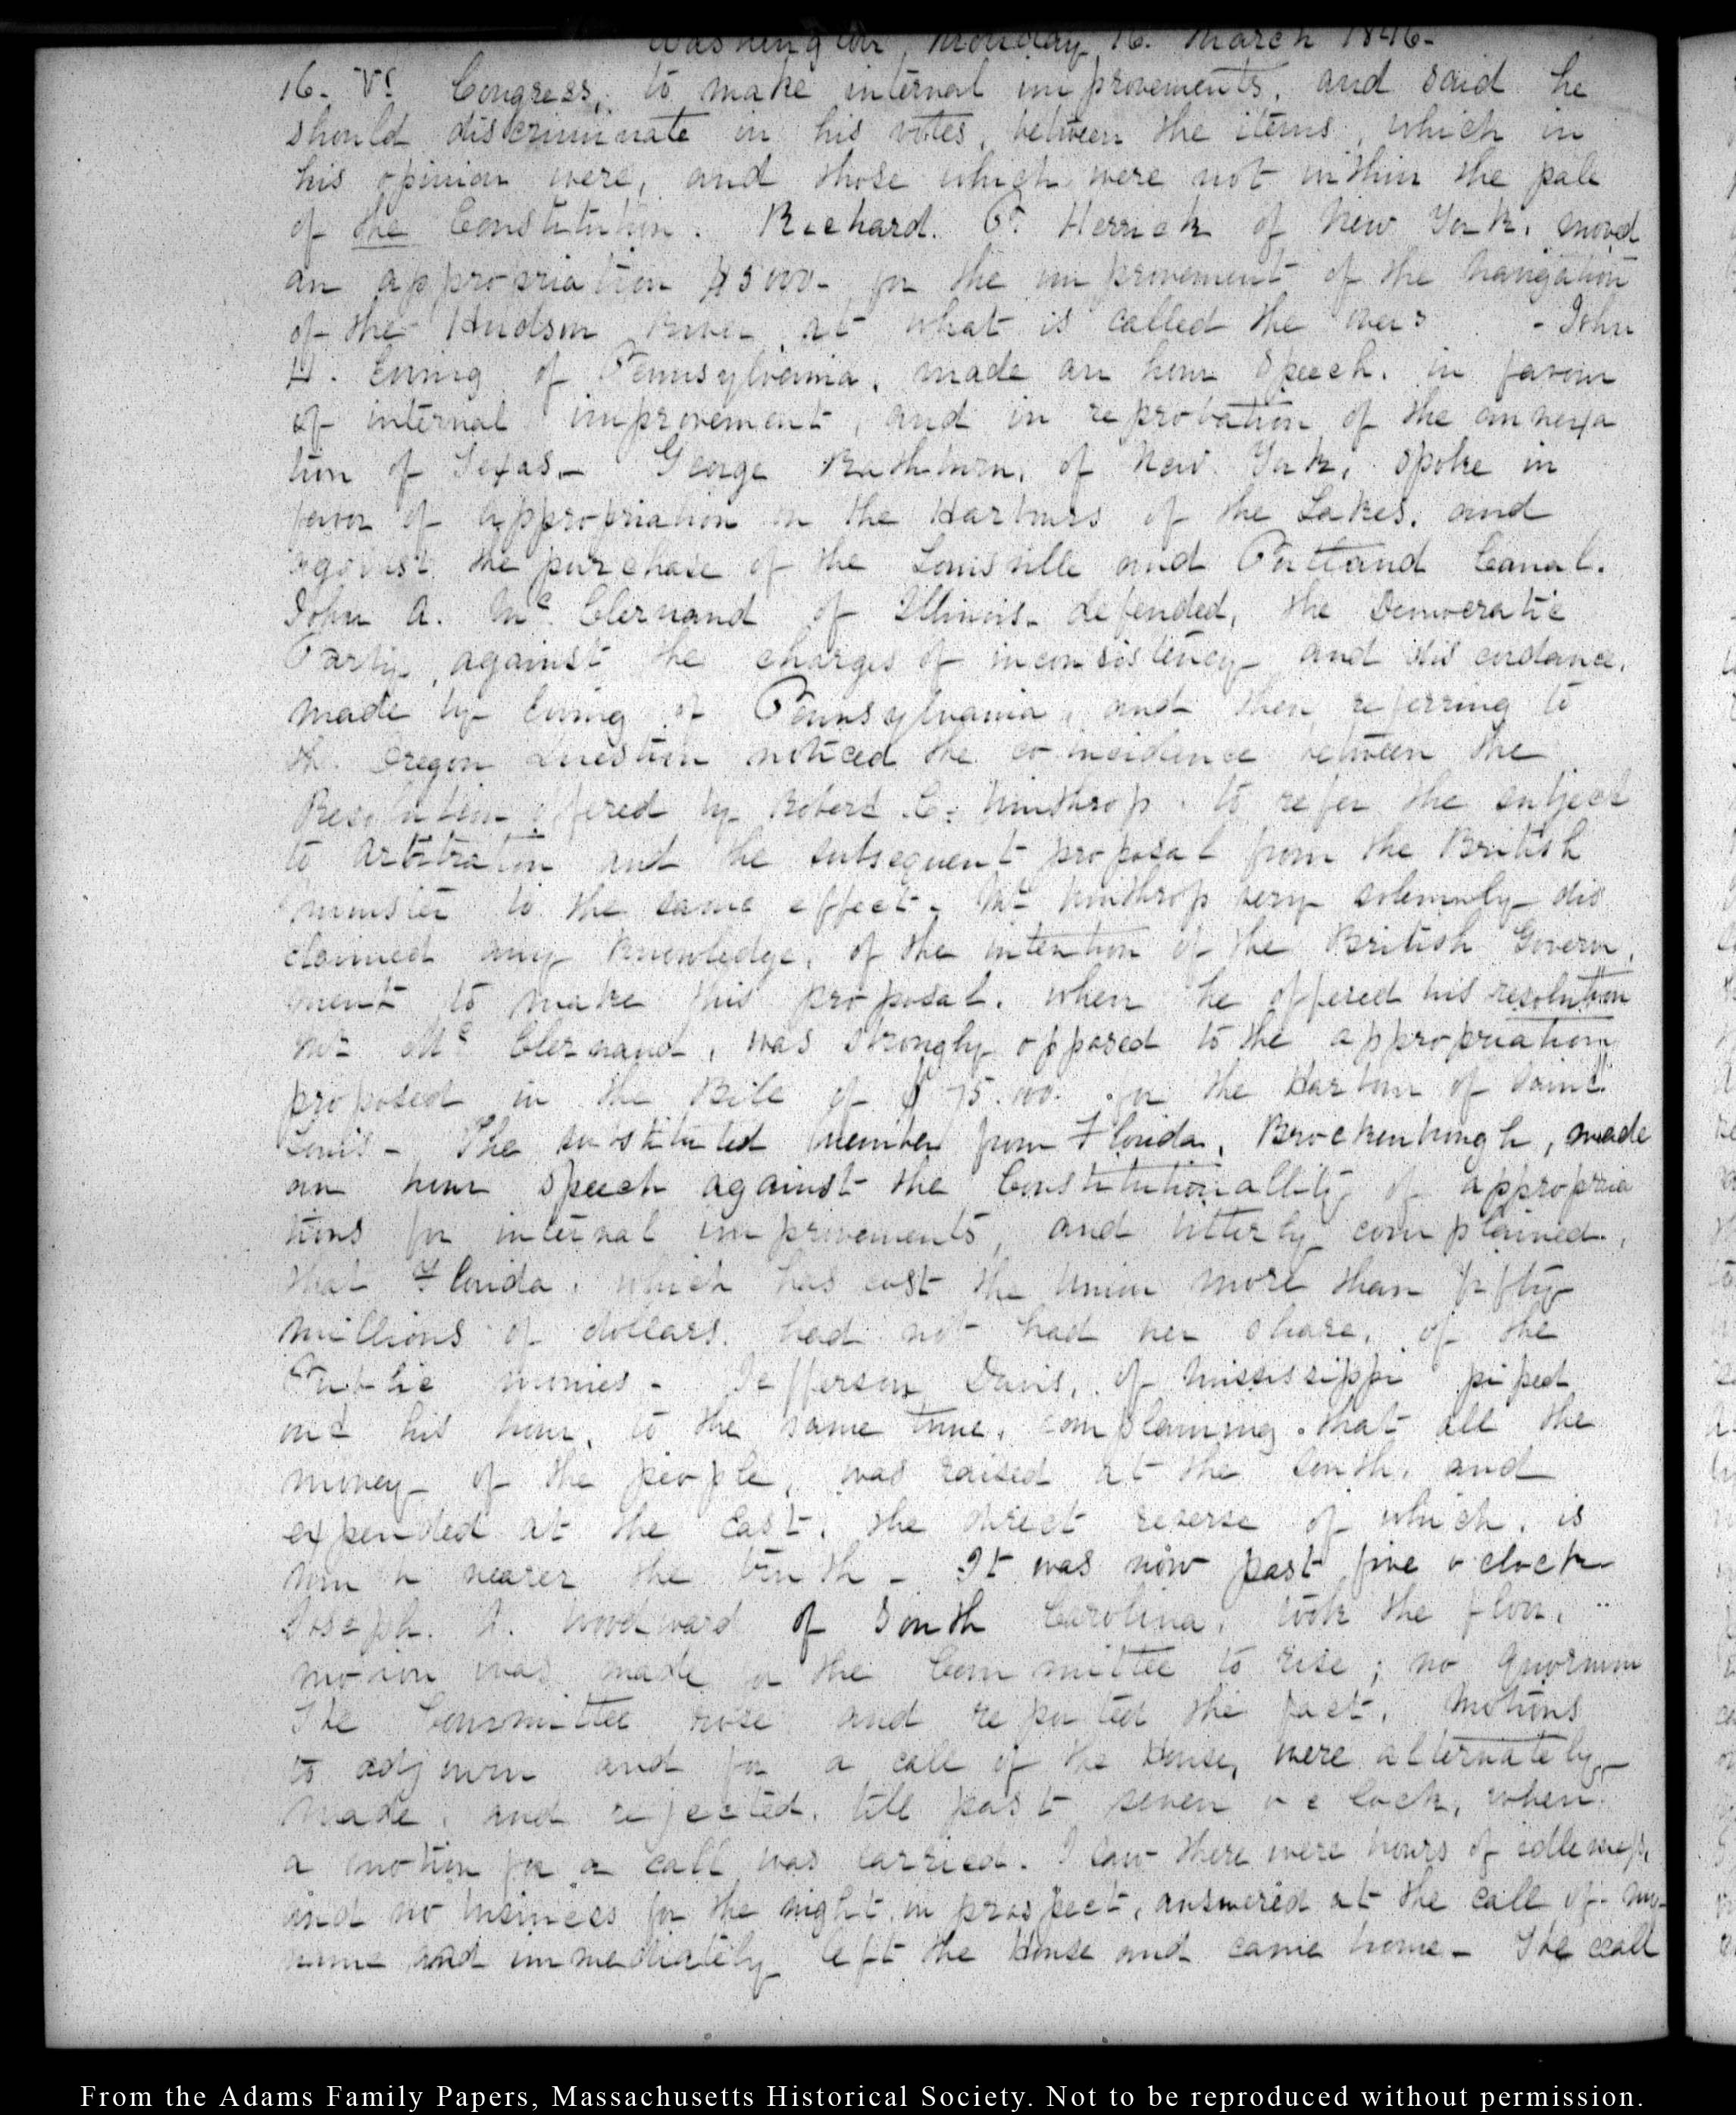 Washington, Monday 16. March 1846-
16. V: Congress, to make internal improvements, and said he
should discriminate in his votes, between the items, which in
his opinion were, and those which were not within the pale
of the Constitution. Richard. P. Herrick of New York, moved
an appropriation $5000- for the improvement of the navigation
of the Hudson River at what is called the - John
H. Ewing of Pennsylvania, made an hour speech, in favour
of internal improvement, and in reprobation of the annexa
tion of Texas.- George Rathburn, of New York, spoke in
favor of appropriation on the Harbours of the Lakes, and
against the purchase of the Louisville and Portland Canal.
John A. Mc. Clernand of Illinois- defended, the Democratic
Party, against the charges of inconsistency and discordance,
made by Ewing of Pennsylvania, and then referring to
the Oregon Question noticed the coincidence between the
Resolution offered by Robert C. Winthrop, to refer the subject
to Arbitration and the subsequent proposal from the British
minister to the same effect- Mr Winthrop very solemnly dis
claimed any knowledge, of the intention of the British Govern,
ment to make this proposal, when he offered his resolution
Mr Mc Clernand, was strongly opposed to the appropriation
proposed in the Bill of $75.000. for the Harbour of Saint
Louis- The substituted member from Florida, Brockenbrough, made
an hour speech against the Constitutionallity of appropria
tions for internal improvements, and bitterly complained,
that Florida, which has cost the Union more than fifty
millions of dollars, had not had her share, of the
Public monies- Jefferson Davis, of Mississippi piped
out his hour, to the same tune, complaining that all the
money of the people, was raised at the South, and
expended at the East, the direct reverse of which, is
much nearer the truth- It was now past five o clock
Joseph. A. Woodward of South Carolina, took the floor,
motion was made for the Committee to rise; no quorum
The Committee rose and reported the fact. Motions
to adjourn and for a call of the House, were alternately
made, and rejected, till past seven o c lock, when
a motion for a call was carried. I saw there were hours of idleness,
and no business for the night in prospect, answered at the call of my
name and immediately left the House and came home- The call
From the Adams Family Papers, Massachusetts Historical Society. Not to be reproduced without permission.